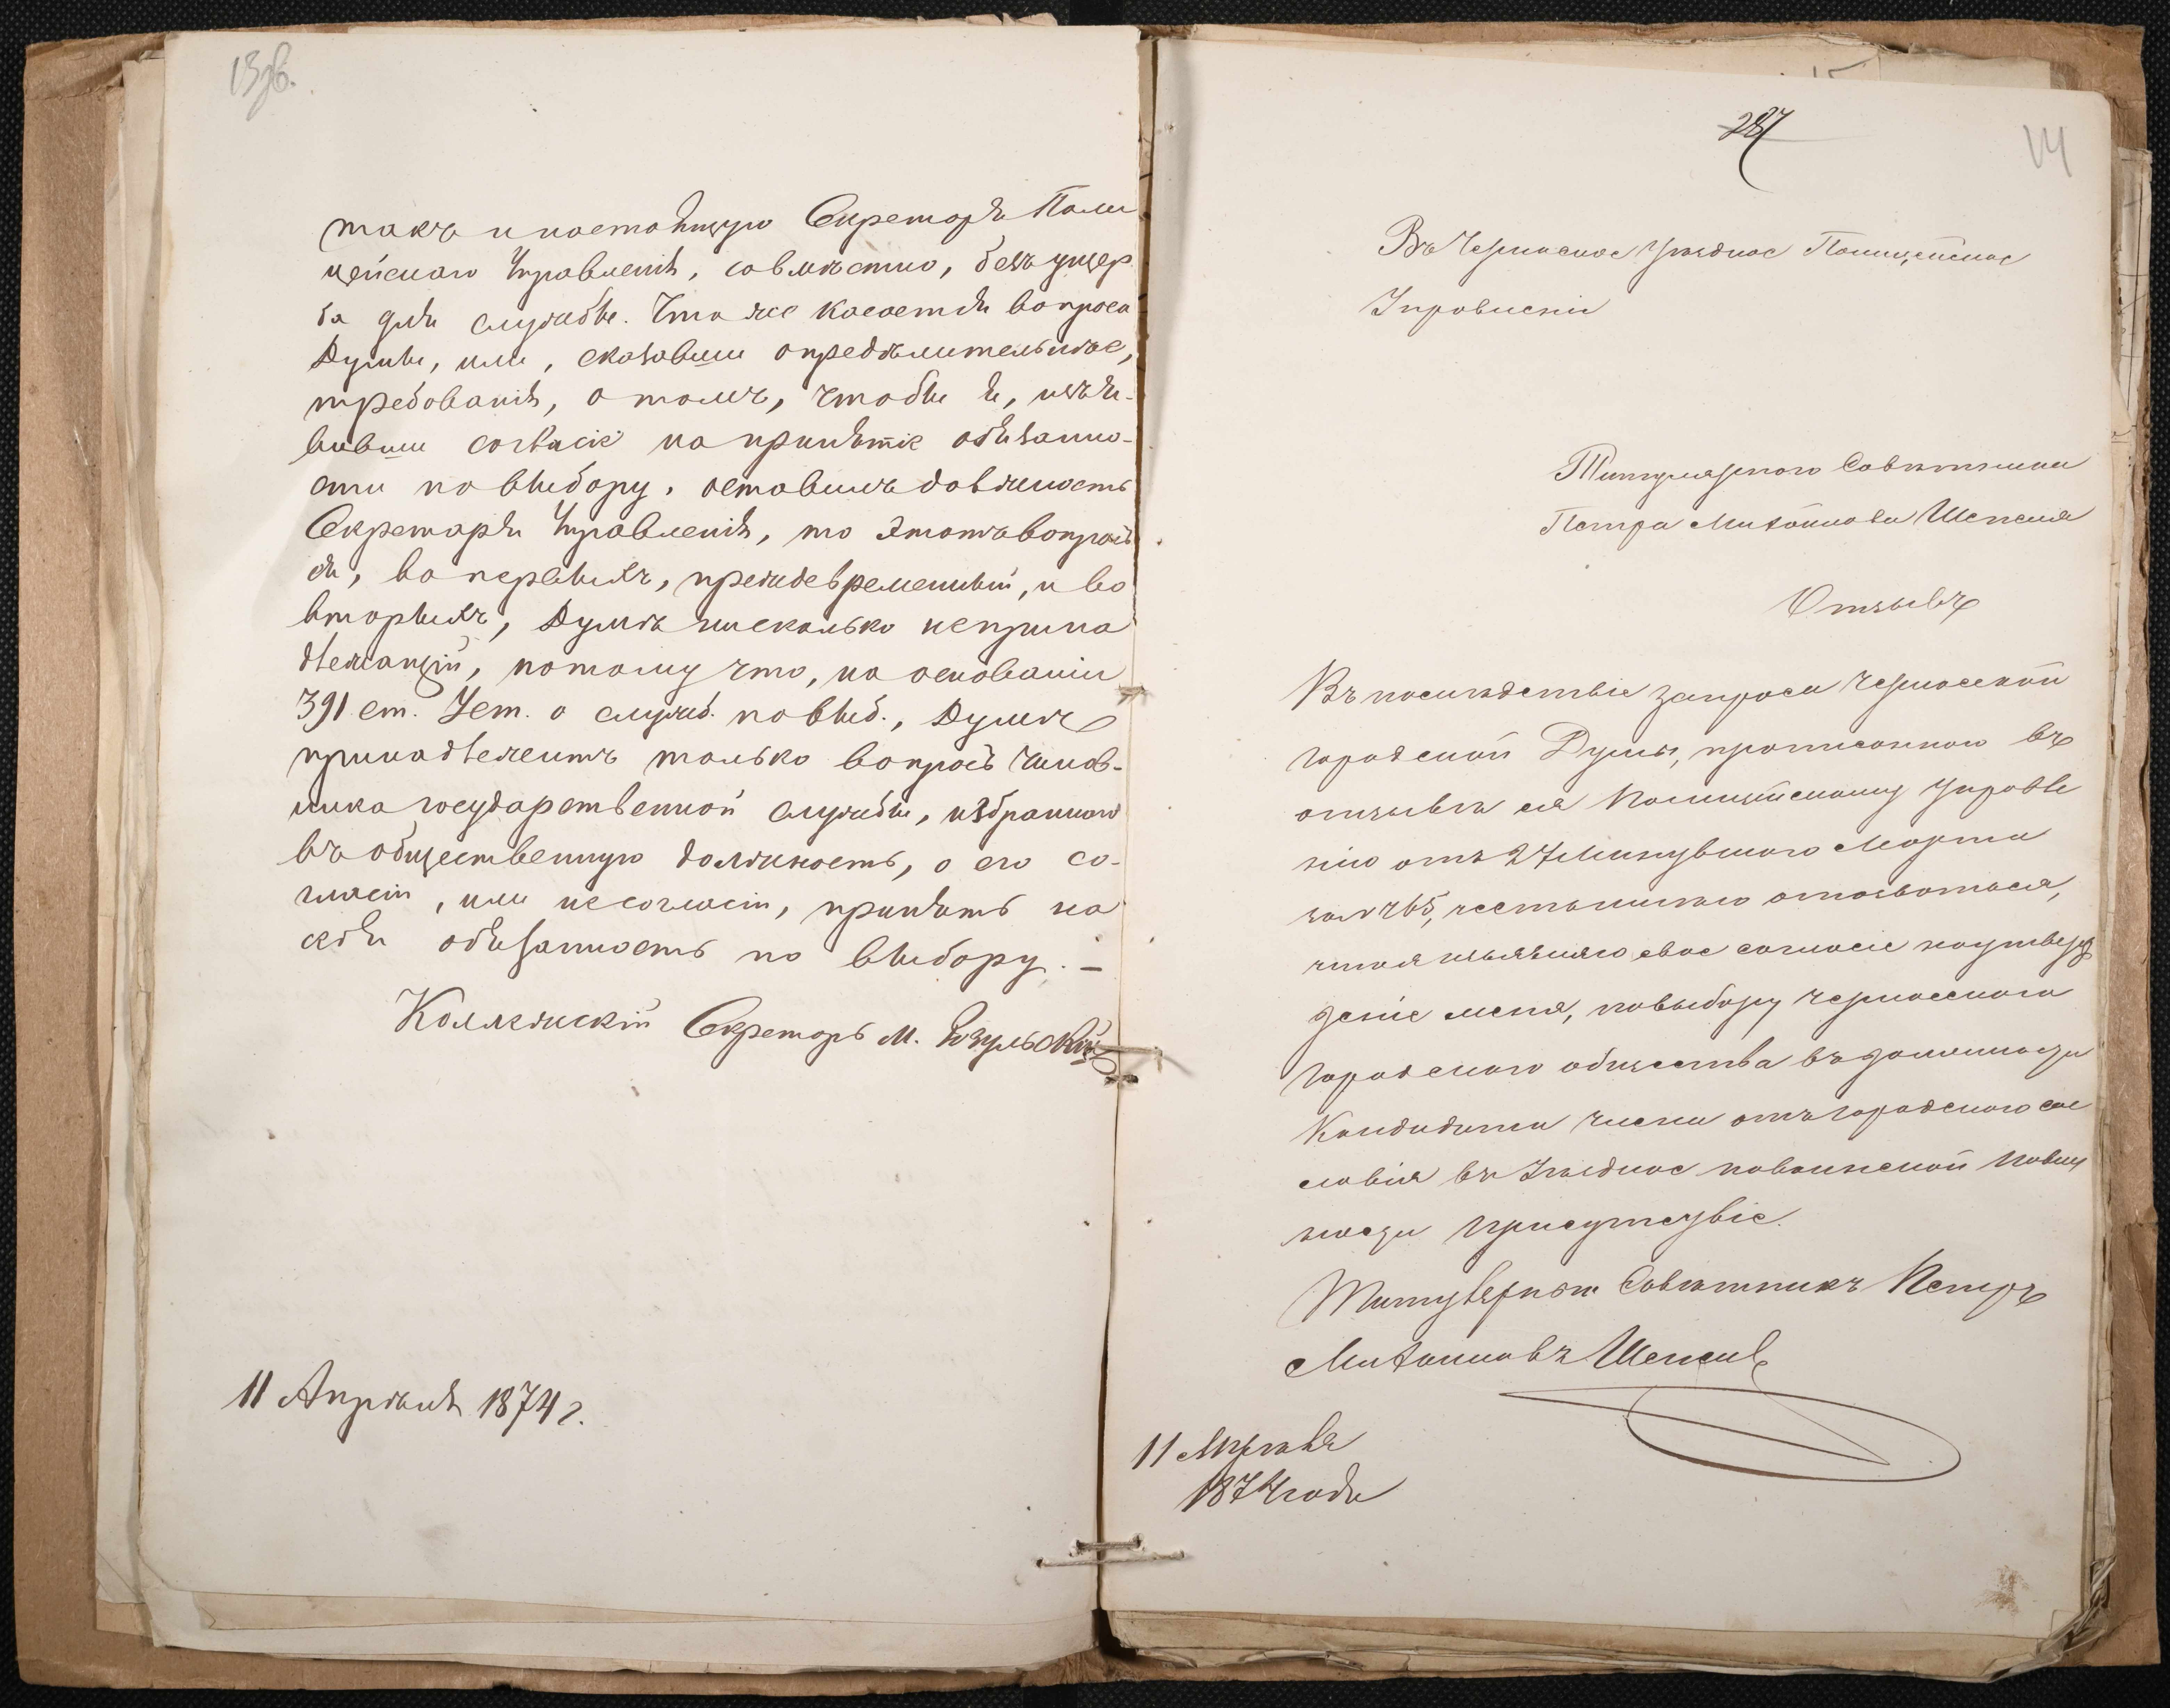 13об.
такъ и настоящую Секретаря Поли
цейскаго Управленія, совмѣстно, безъ ущер
ба для службы. Что же касается вопроса
Думы, или, сказавши опредѣлительнѣе,
требованія, о томъ, чтобы я, изъя-
вивши согласіе на принятіе обязанно-
сти по выбору, оставилъ должность
Секретаря Управленія, то этотъ вопросъ
есть, во первыхъ, преждевременный, и во
вторыхъ, Думѣ нисколько неприна
длежащій, потому что, на основаніи
391 ст. Уст. о служб. по выб., Думѣ
принадлежитъ только вопросъ чинов-
ника государственной службы, избраннаго
въ общественную должность, о его со-
гласіи, или несогласіи, принять на
себя обязанность по выбору. –
Коллежскій Секретарь М.
11 Апрѣля 1874 г.
287
14
Въ Черкаское Уѣздное Полицейское
Управленіе
Титулярнаго Совѣтника
Петра Митофанова
Отзывъ
Въ послѣдствіе запроса Черкасской
городской Думы, прописаннаго въ
отзывѣ ея Полицейскому Управле
нію отъ 27 Минувшаго Марта
за № 265, честь имѣю отозваться,
что я изъявляю свое согласіе на утверж
деніе меня, по выбору Черкасскаго
городскаго общества въ должности
Кандидата члена отъ городскаго со
словія въ Уѣздное по воинской повин
ности присутствіе.
Титулярный Совѣтникъ Петръ
Митофановъ
11 Апрѣля
1874 года